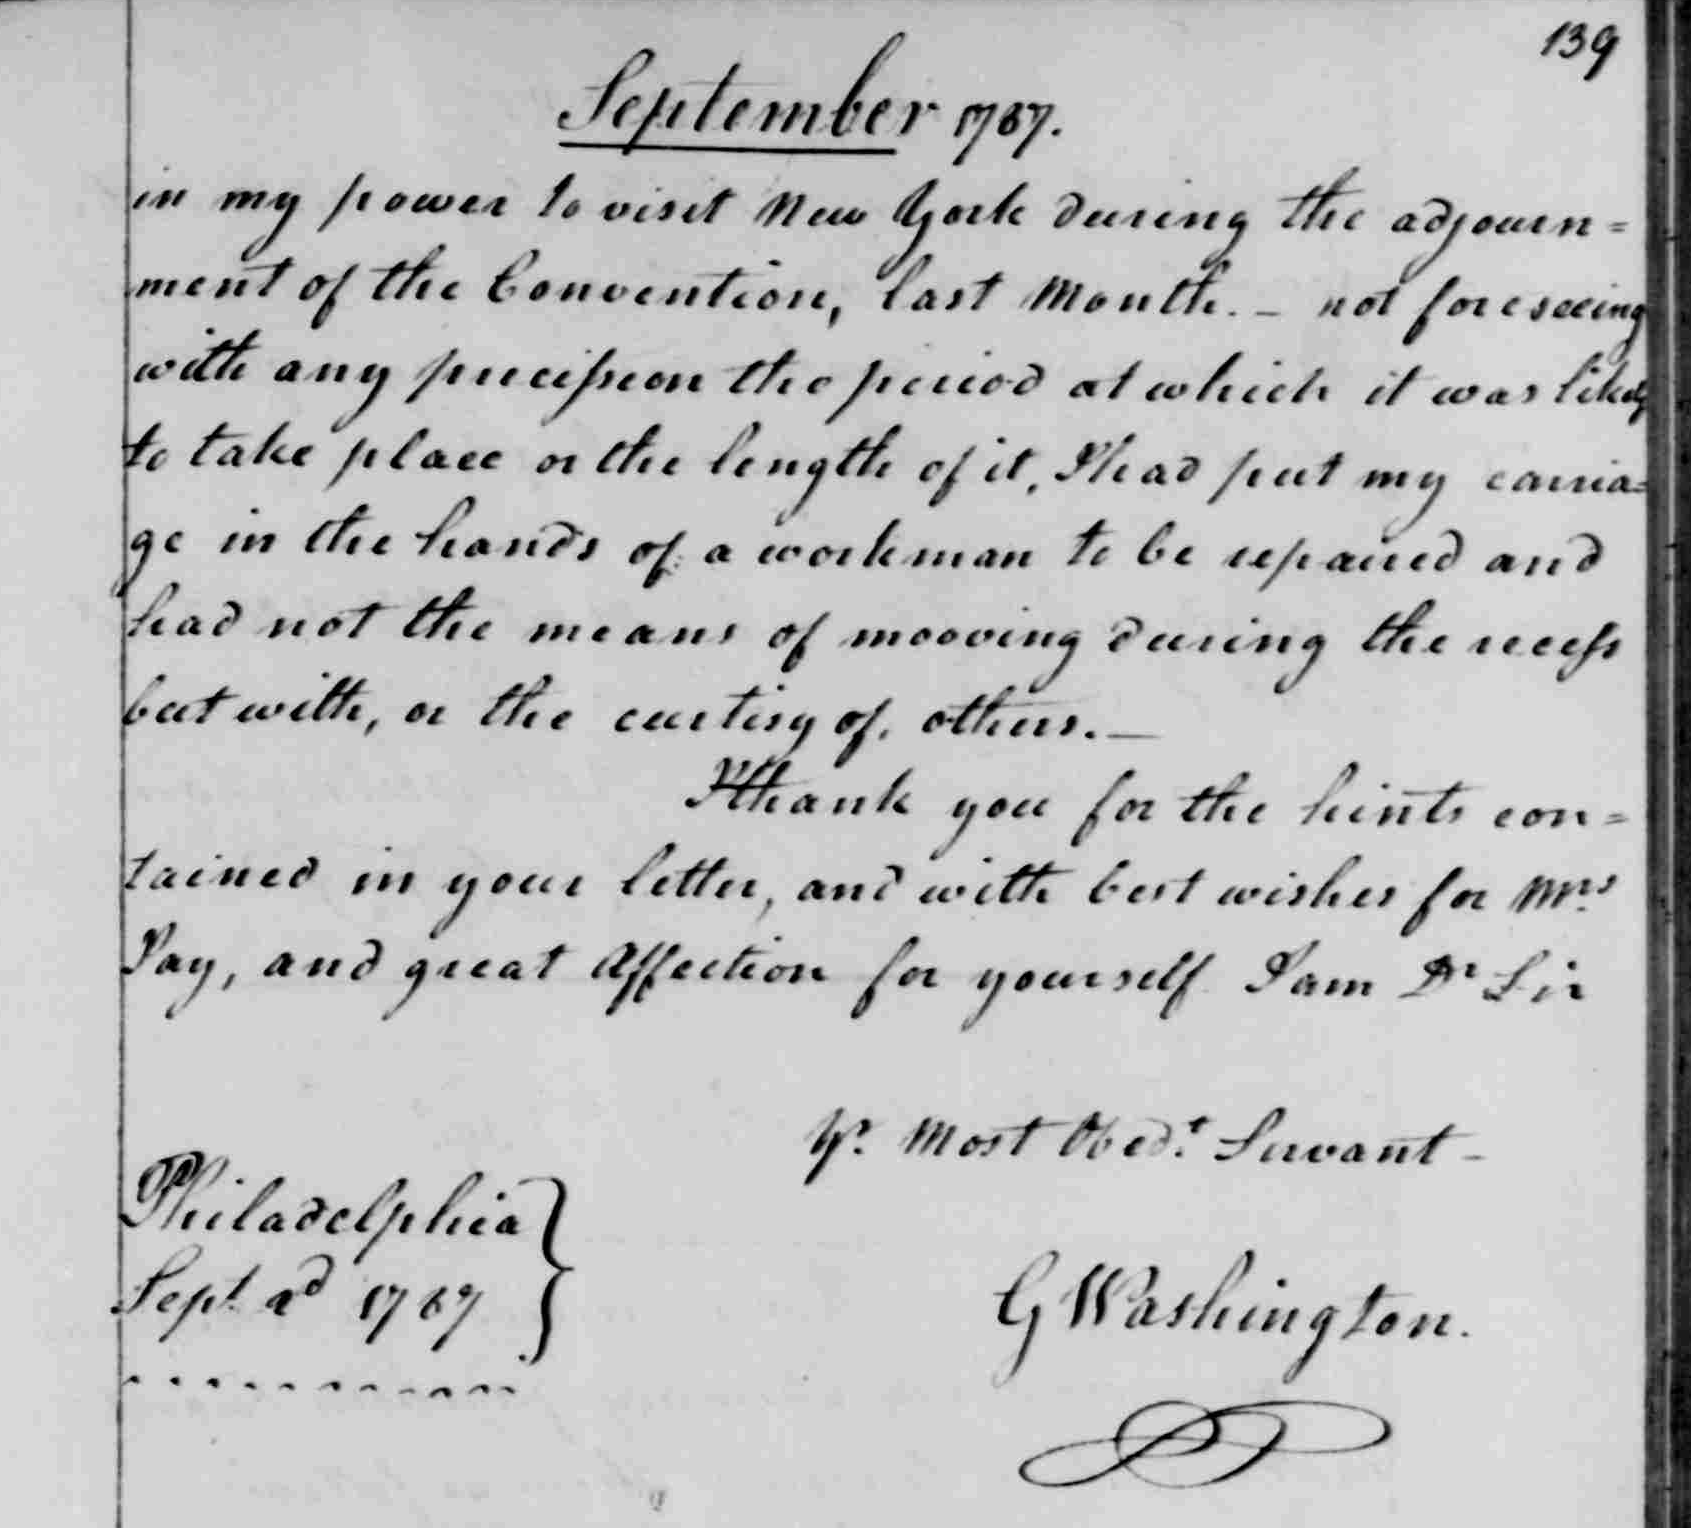 139
September 1787.
in my power to visit New York during the adjourn=
ment of the Convention, last Month. – not foreseeing
with any precission the period at which it was likely
to take place or the length of it, I had put my carria=
ge in the hands of a workman to be repaired and
had not the means of mooving during the recess
but with, or the curtisy of, others. —
I thank you for the hints con=
tained in your letter, and with best wishes for Mrs
Jay, and great Affection for yourself I am Dr Sir
Yr. Most Obedt. Servant –
Philadelphia
Sept. 2d 1787
G Washington.